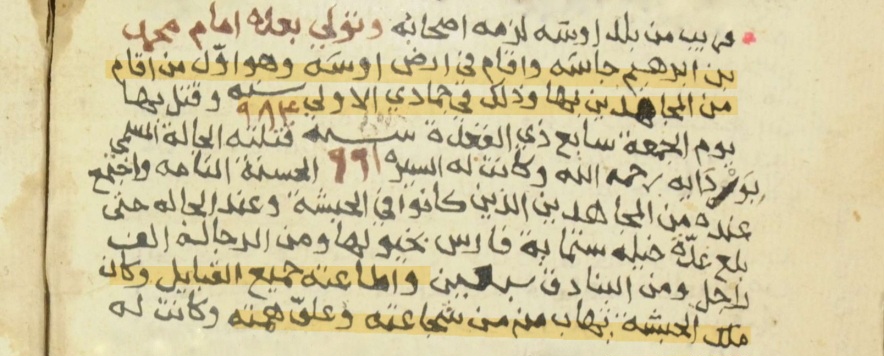 قريب من بلد اوسه لزمه اصحابه وتولي بعده امام محمد
بن ابرهيم جاسه واقام في ارض اوسه وهو اول من اقام
من المجاهدين بها وذلك في جمادي الاولي سنه ٩٨٤ وقتل بها
يوم الجمعة سابع ذي القعدة سنه ٩٩١ قتلته الجالة المسمي
رحمه الله وكانت له السيره الحسنة التامه واجتمع
عنده من المجاهدين الذين كانوا في الحبشة وعند الجاله حتى
بلغ عدّة خيله ستماية فارس بخيولها ومن الرجالة الف
راجل ومن البنادق سبعين واطاعته جميع القبايل وكان
ملك الحبشة يهاب منه من شجاعته وعلوّ همته وكانت له